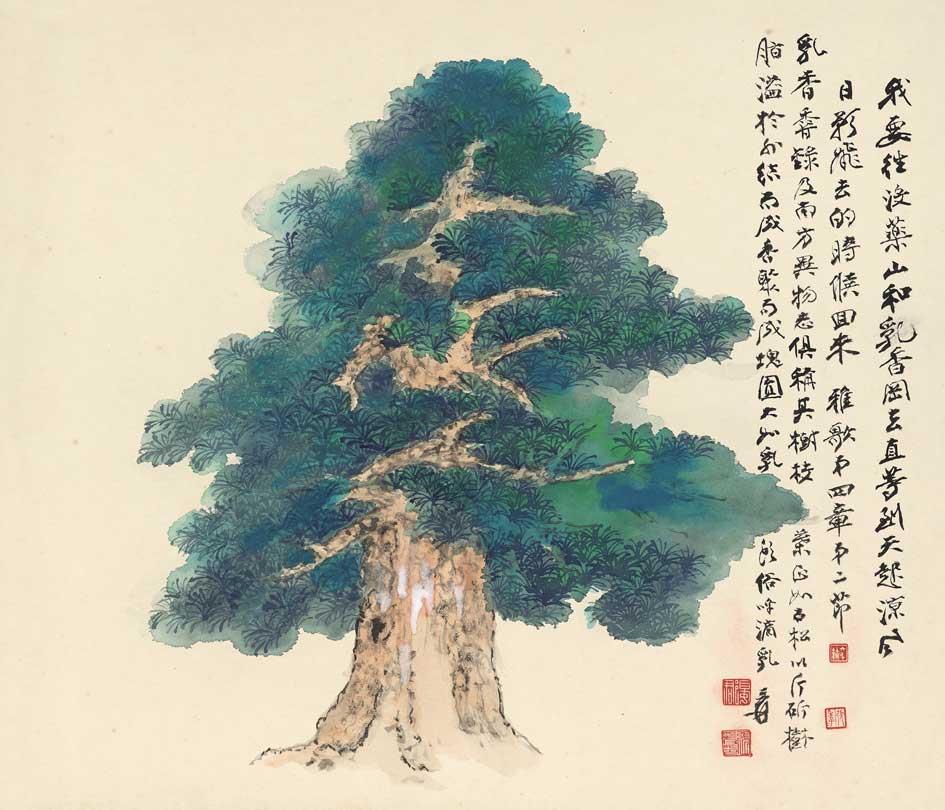 我要往沒藥山和乳香岡去直等到天起涼風
日影飛去的時候回來 雅歌第四章第二節
乳香香錄及南方異物志俱稱其樹枝葉正如古松以斤斫樹
脂溢於外結而成香聚而成塊圓大如乳 故俗呼滴乳 爰